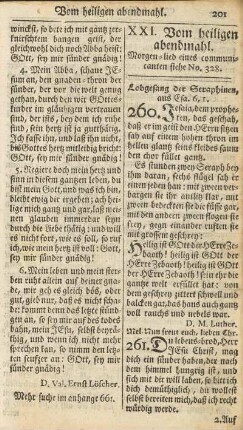 Vom heiligen abendmahl.
201
winckst, so tritt ich mit gantz zer-
knirschtem hangen geist, der
gleichwohl dich noch Abba heist:
GOtt, sey mir sünder gnädig!
4. Mein Abba, schaue JE-
sum an, den gnaden-thron der
sünder, der vor die welt genug
gethan, durch den wir GOttes
kinder im gläubigen vertrauen
sind, der ists, bey dem ich ruhe
find; sein hertz ist ja gutthätig.
Ich fasse ihn, und laß ihn nicht,
bis GOttes hertz mitleidig bricht:
GOtt, sey mir sünder gnädig!
5. Regiere doch mein hertz und
sinn in diesem gantzen leben, du
bist mein GOtt, und was ich bin,
bleibt ewig dir ergeben; ach, hei-
durch die liebe thätig; und will
es nicht fort, wie es soll, so ruf
ich, wie mein hertz ist voll: GOtt,
sey mir sünder gnädig!
6. Mein leben und mein ster-
ben ruht allein auf deiner gnade,
mir geh es gleich bös, oder
gut, gieb nur, daß es nicht scha-
so sey mir auch an des todes
bahn, mein JEsu, selbst beyrä-
thig, und wenn ich nicht mehr
sprechen kan, so nimm den letz-
ten seufzer an: GOtt, sey mir
sünder gnädig!
D. Val. Ernst Löscher.
Mehr suche im anhange 661.
XXI. Vom heiligen
abendmahl.
Morgen-lied eines communi-
canten siehe No. 328.
Lobgesang der Seraphinen,
aus Esa. 6, 1.
260. JEsaia, dem prophe-
ten, das geschah,
daß er im geist den HErrn sitzen
sah auf einem hohen thron in
hellem glantz, seines kleides
saum den chor füllet gantz. Es
stunden zween seraph bey ihm
daran, sechs flügel sah er einen
jedern han, mit zween verbar-
gen sie ihr antlitz klar, mit
zween bedeckten sie die füsse gar,
und mit den andern zween sie flogen frey,
gegen ander rufften sie mit grossem
geschrey:
Heilig ist GOtt der HErre Ze-
baoth! heilig ist GOtt der HErre
Zebaoth! heilig ist GOtt
der HErre Zebaoth! Sein ehr
die gantze welt erfüllet hat: von
dem gschrey zittert schwell und
balcken gar, das haus auch gantz
voll rauchs und nebel war.
D. M. Luther.
Mel. Nun freut euch, lieben Chr.
261. DU lebens-brod, HErr
JEsu Christ, mag
dich ein sünder haben, der nach
dem himmel hungrig ist, und
sich mit dir will laben, so bitt ich
dich demüthiglich, du wollest
selbst bereiten mich, daß ich recht
würdig werde.
2. Auf